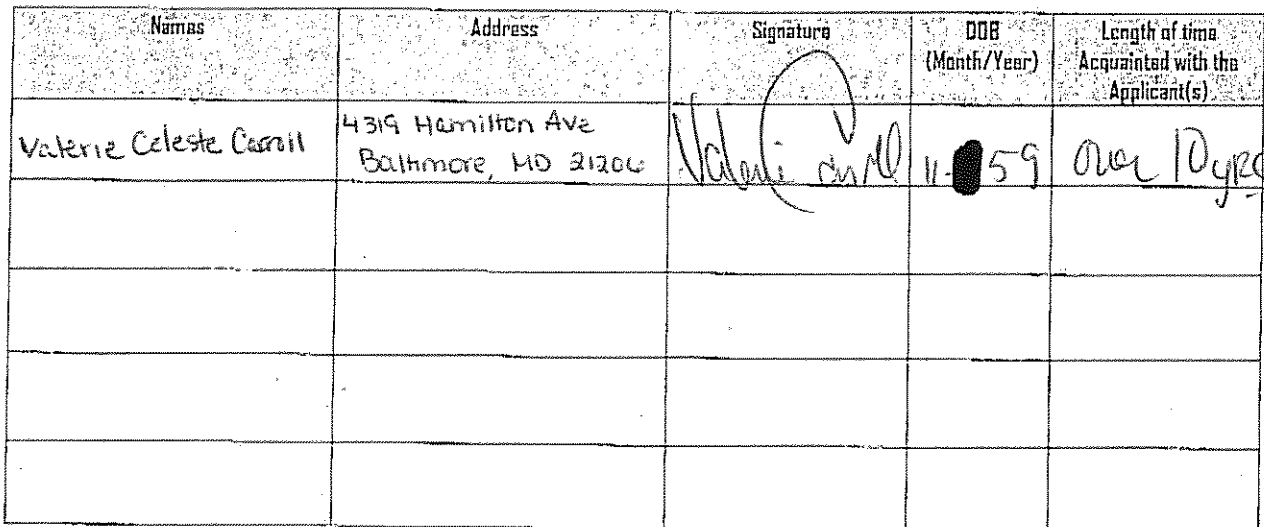 Names
Address
Signature
DOB
(Month/Year)
Length of time
Acquainted with the
Applicant(s)
Valerie Celeste Carroll
4319 Hamilton Ave
Baltimore, MD 21206
Valerie Carroll
11- 59
Over 10 yrs